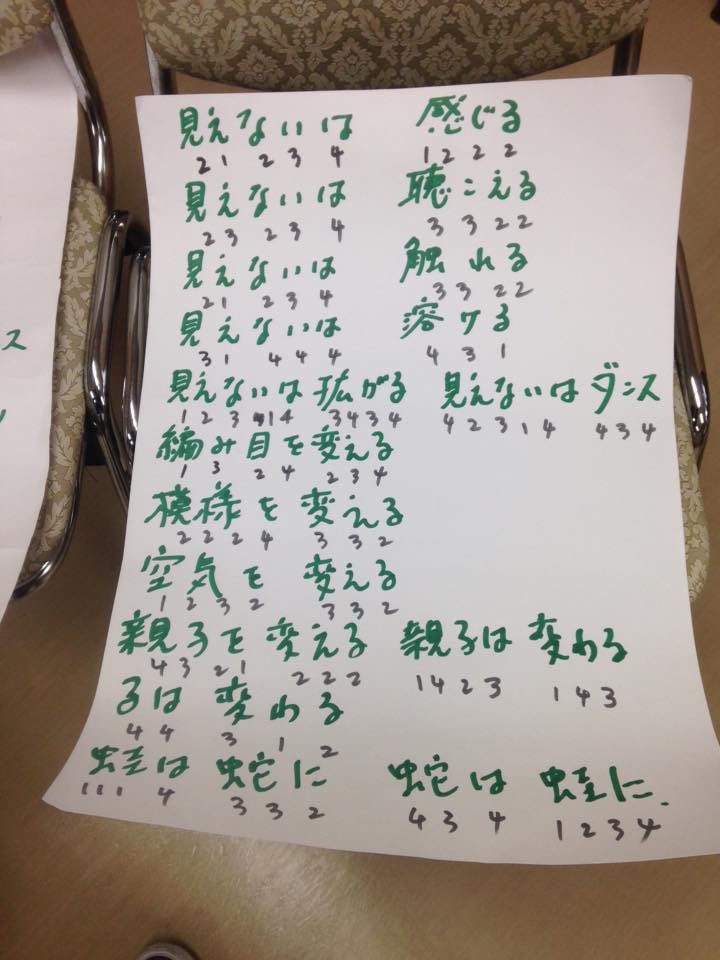 見えないは 感じる
2 1 2 3 4 1 2 2 2
見えないは 聴こえる
2 3 2 3 4 3 3 2 2
見えないは 触れる
2 1 2 3 4 3 3 2 2
見えないは 溶ける
3 1 4 4 4 4 3 1
見えないは拡がる 見えないはダンス
1 2 3 1 4 3 4 3 4 4 2 3 1 4 4 3 4
編み目を変える
1 3 2 4 2 3 4
模様を変える
2 2 2 4 3 3 2
空気を変える
1 2 3 2 3 3 2
親子を変える 親子は変わる
4 3 2 1 2 2 2 1 4 2 3 1 4 3
子は変わる
4 4 3 1 2
蛙は 蛇に 蛇は 蛙に.
1 1 1 4 3 3 2 4 3 4 1 2 3 4
ス